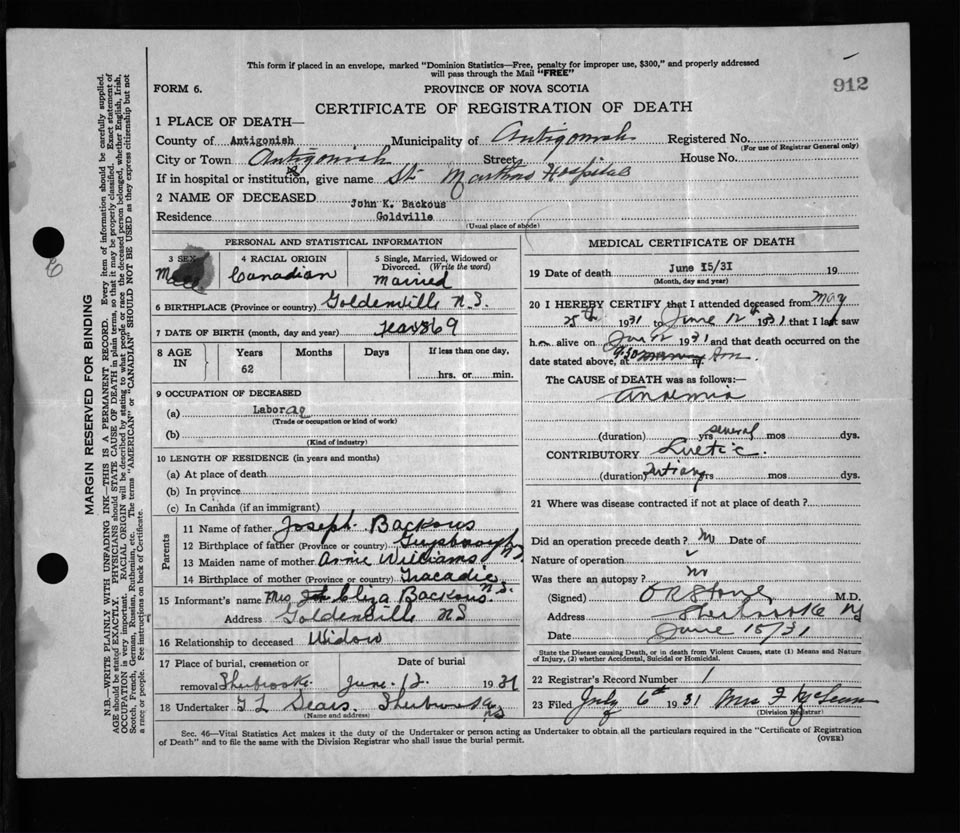 This form if placed in an envelope, marked "Dominion Statistics—Free, penalty for improper use, $300," and properly addressed
will pass through the Mail "FREE"
912
FORM 6.
PROVINCE OF NOVA SCOTIA
CERTIFICATE OF REGISTRATION OF DEATH
1 PLACE OF DEATH—
County of Antigonish Municipality of Antigonish Registered No.
(For use of Registrar General only)
City or Town Antigonish Street House No.
If in hospital or institution, give name St Marthas Hospital
2 NAME OF DECEASED John K. Backous
Residence Goldville
(Usual place of abode)
PERSONAL AND STATISTICAL INFORMATION
3 SEX Male
4 RACIAL ORIGIN Canadian
5 Single, Married, Widowed or Divorced. (Write the word) Married
6 BIRTHPLACE (Province or country) Goldenville N.S.
7 DATE OF BIRTH (month, day and year) 1869
8 AGE IN Years Months Days If less than one day,
62 hrs. or min.
9 OCCUPATION OF DECEASED
(a) Labor
(Trade or occupation or kind of work)
(b)
(Kind of industry)
10 LENGTH OF RESIDENCE (in years and months)
(a) At place of death
(b) In province
(c) In Canada (if an immigrant)
Parents
11 Name of father Joseph Backous
12 Birthplace of father (Province or country) Guysborough
13 Maiden name of mother Annie Williams
14 Birthplace of mother (Province or country) Tracadie N.S.
15 Informant's name Mrs Eliza Backous
Address Goldenville NS
16 Relationship to deceased Widow
17 Place of burial, cremation or removal Sherbrooke Date of burial June 1931
18 Undertaker Sears Sherbrooke NS
(Name and address)
MEDICAL CERTIFICATE OF DEATH
19 Date of death June 15/31 19
(Month, day and year)
20 I HEREBY CERTIFY that I attended deceased from May
25th 1931 to June 12th 1931 that I last saw
h alive on Jun 12 1931 and that death occurred on
date stated above, at 9.30 m.
The CAUSE of DEATH was as follows:—
Anaemia
(duration) yrs several mos dys.
CONTRIBUTORY Luetic
(duration) Tertiary yrs mos dys.
21 Where was disease contracted if not at place of death?
Did an operation precede death? No Date of
Nature of operation
Was there an autopsy? No
(Signed) M.D.
Address Sherbrooke NS
Date June 15/31
State the Disease causing Death, or in death from Violent Causes, state (1) Means and Nature
of Injury, (2) whether Accidental, Suicidal or Homicidal.
22 Registrar's Record Number 1
23 Filed July 6th 1931 Mrs F
(Division Registrar)
Sec. 46—Vital Statistics Act makes it the duty of the Undertaker or person acting as Undertaker to obtain all the particulars required in the "Certificate of Registration
of Death" and to file the same with the Division Registrar who shall issue the burial permit.
(OVER)
MARGIN RESERVED FOR BINDING
N.B.—WRITE PLAINLY WITH UNFADING INK—THIS IS A PERMANENT RECORD. Every item of information should be carefully supplied.
AGE should be stated EXACTLY. PHYSICIANS should STATE CAUSE OF DEATH in plain terms, so that it may be properly classified. Exact statement of
OCCUPATION is very important. RACIAL ORIGIN will be described by stating to what people or race the deceased person belonged, whether English, Irish,
Scotch, French, German, Russian, Ruthenian, etc. The terms "AMERICAN" or "CANADIAN" SHOULD NOT BE USED as they express citizenship but not
a race or people. Fee instructions on back of Certificate.